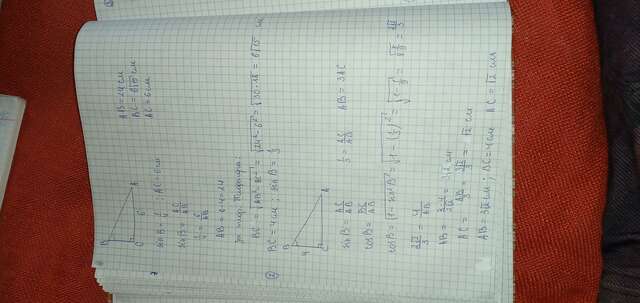 B
A
C
6
AC = 6 см
sin B = 1/4
sin B = AC/AB
1/4 = 6/AB
AB = 6·4 = 24
BC = √AB²-AC² = √24²-6² = √30·18 = 6√15
AB = 24 см
BC = 6√15 см
AC = 6 см
②
BC = 4 см; sin B = 1/3
B
A
C
4
sin B = AC/AB
1/3 = AC/AB
AB = 3AC
cos B = BC/AB
cos B = √1-sin B² = √1-(1/3)² = √1-1/9
= 2√2/3
2√2/3 = 4/AB
AB = 3·4/2√2 = 3√2 см
AC = AB/3 = 3√2/3 = √2 см
AB = 3√2 см; BC = 4 см AC = √2 см